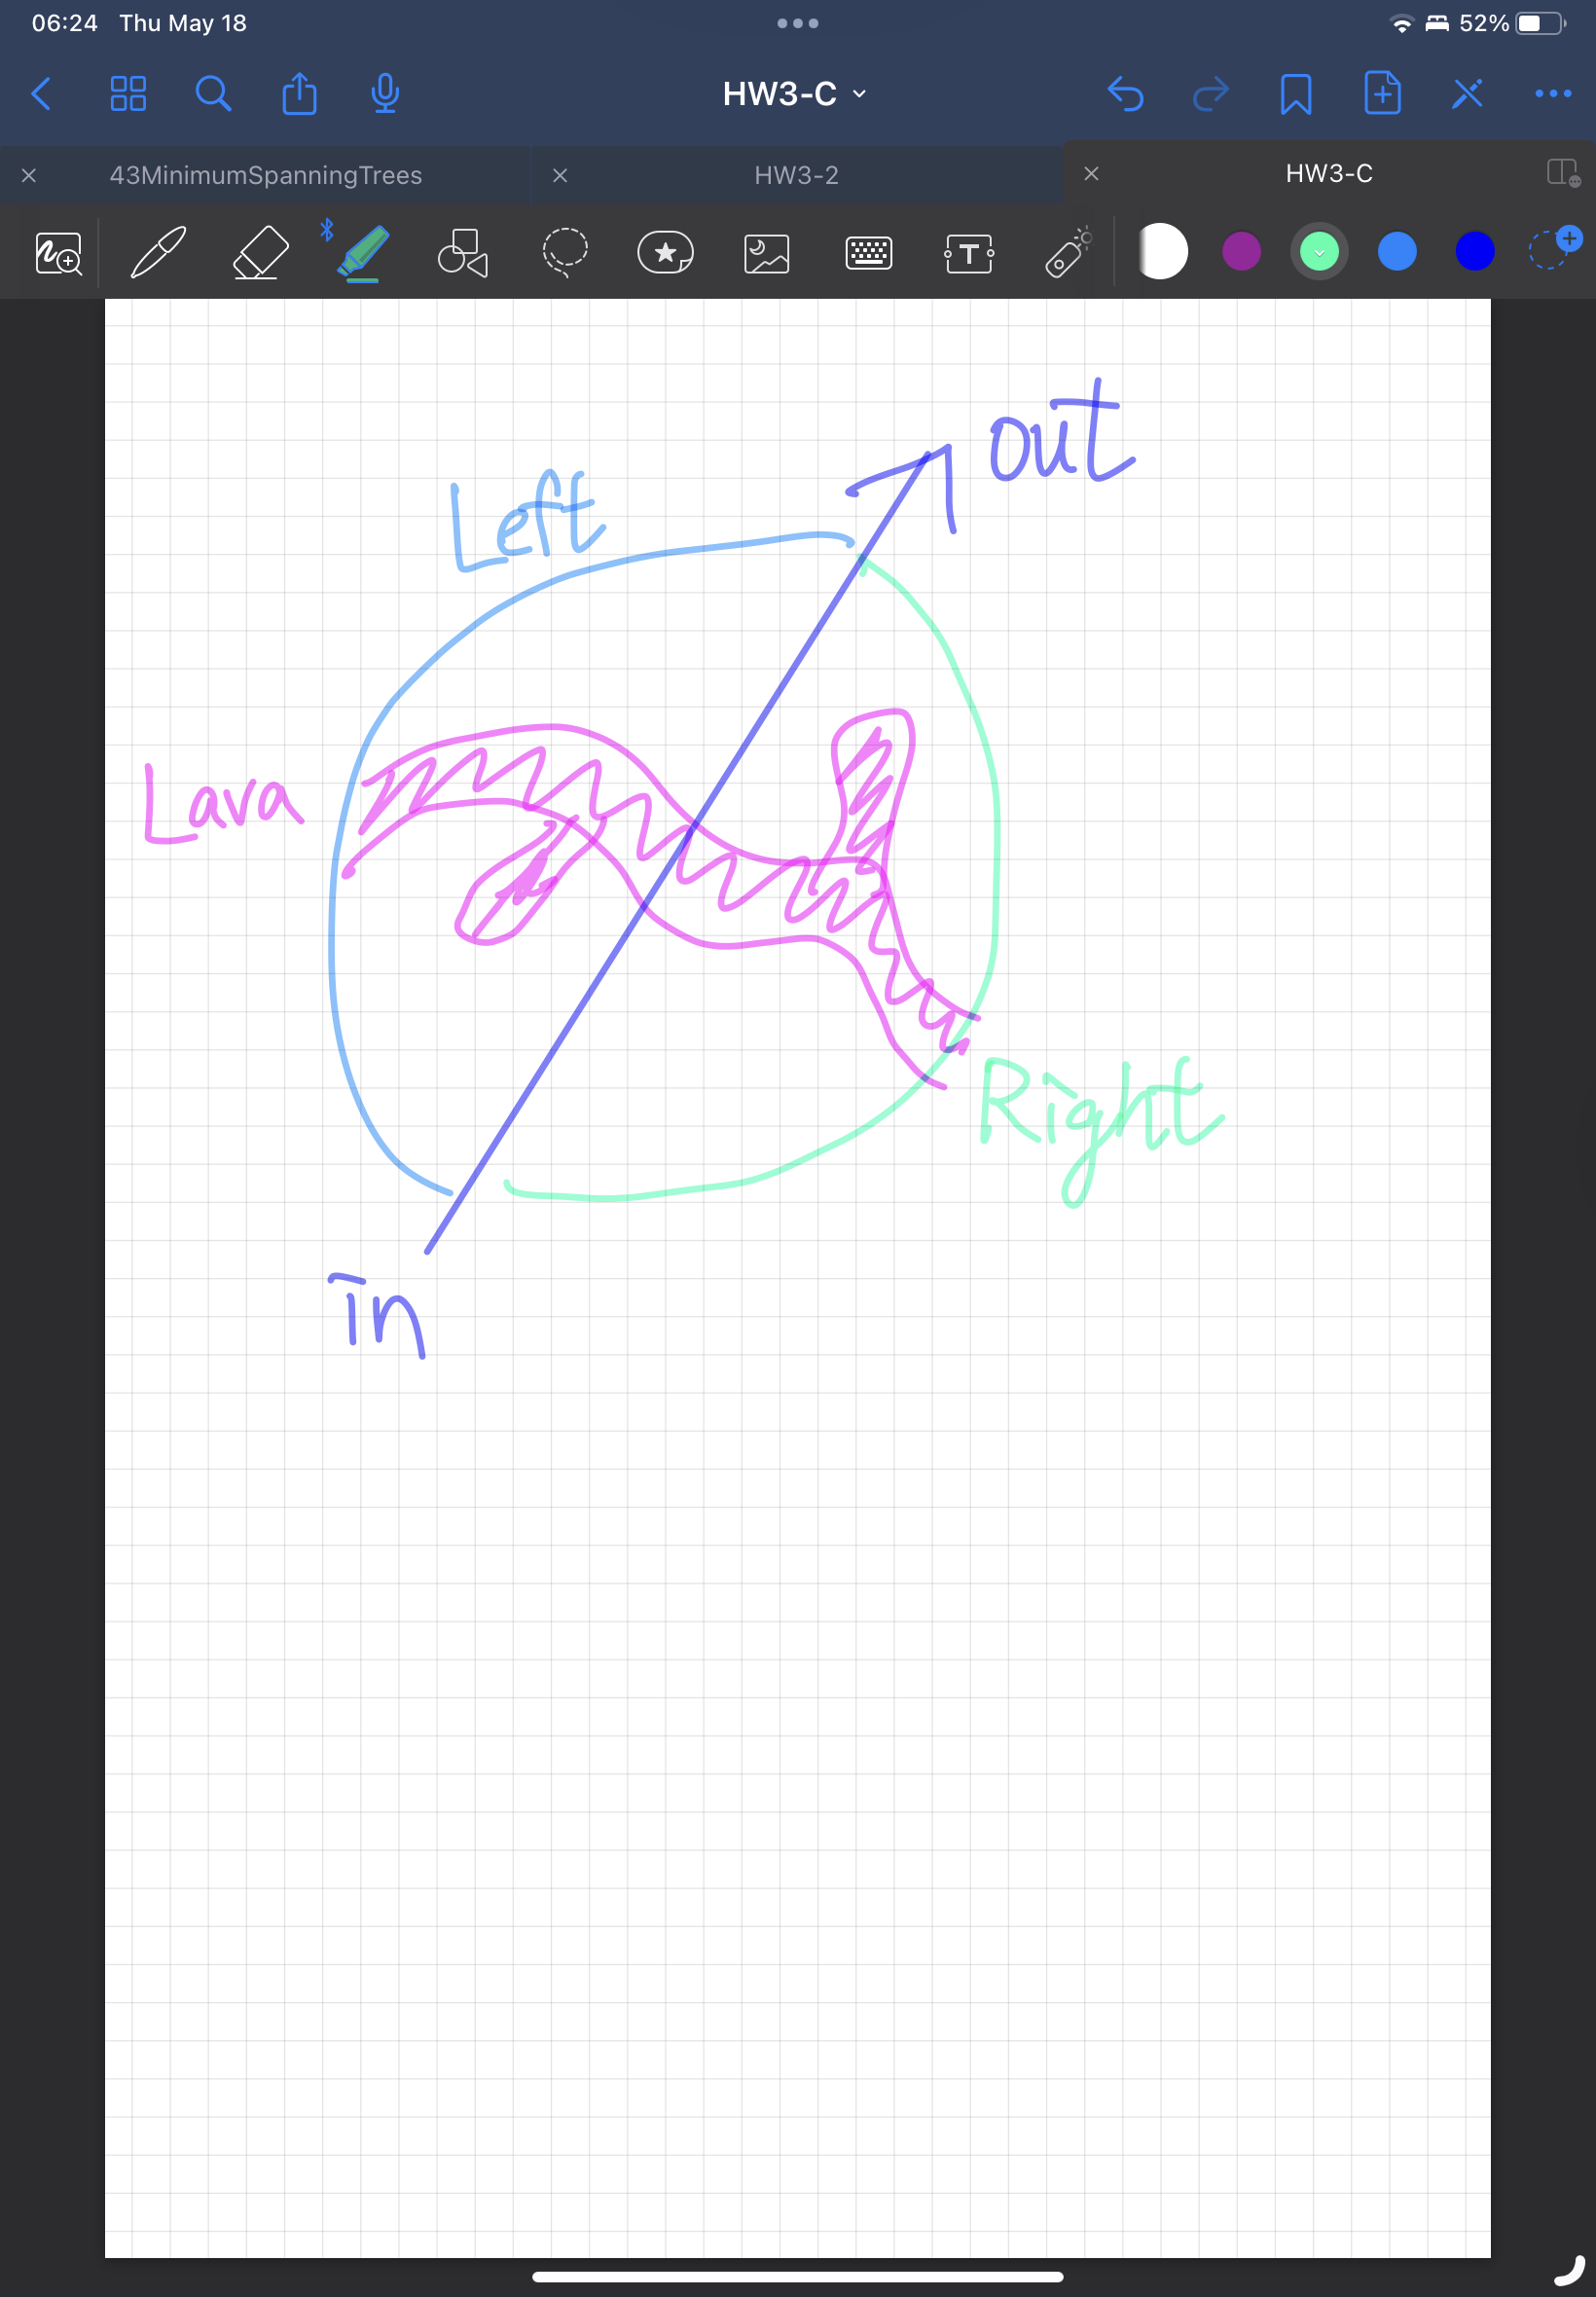 06:24 Thu May 18
52%
HW3-C
43MinimumSpanningTrees
HW3-2
HW3-C
T
out
Left
Lava
Right
in